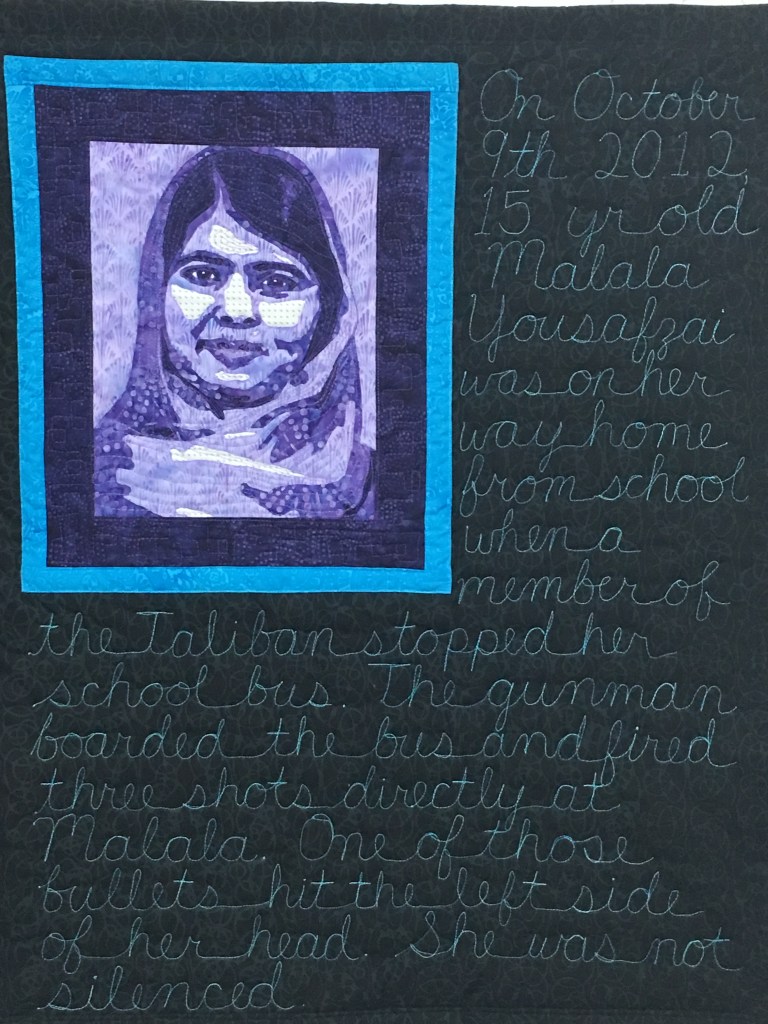 On October
9th 2012,
15 yr old
Malala
Yousafzai
was on her
way home
from school
when a
member of
the Taliban stopped her
school bus. The gunman
boarded the bus and fired
three shots directly at
Malala. One of those
bullets hit the left side
of her head. She was not
silenced.